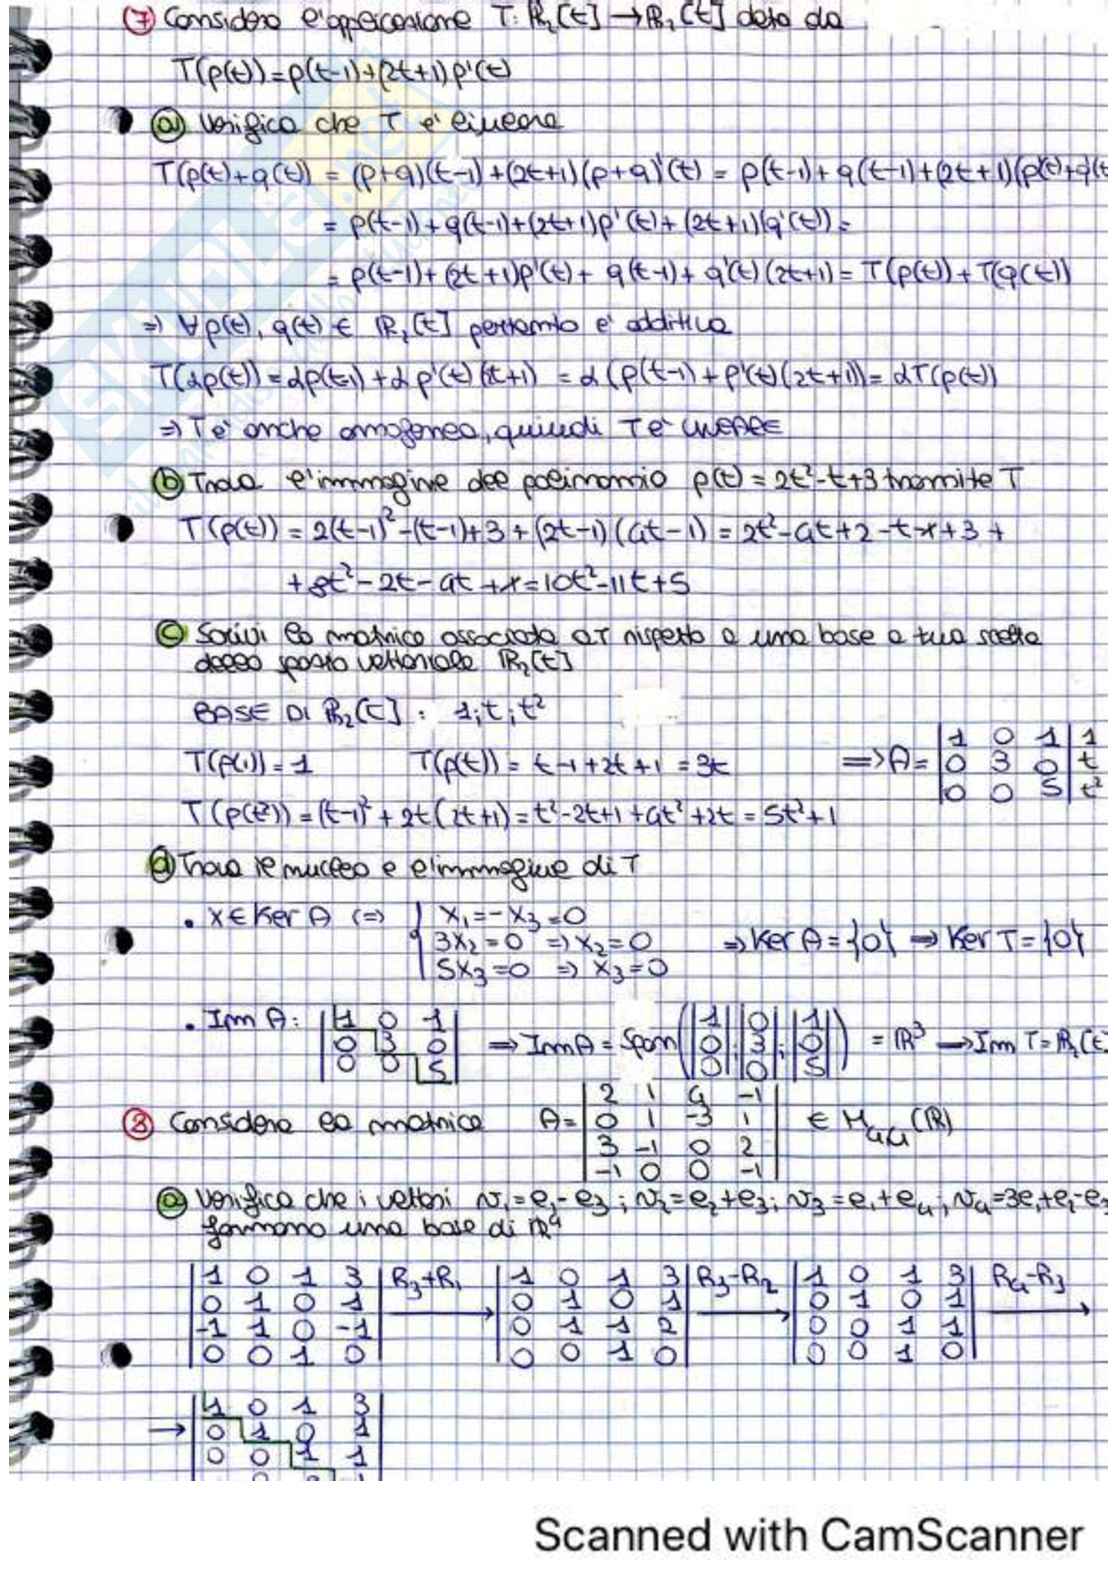 ⑦ Considera l'applicazione T: ℝ₂[t] → ℝ₂[t] data da
T(p(t)) = p(t-1) + (2t+1)p'(t)
ⓐ Verifica che T è lineare
T(p(t)+q(t)) = (p+q)(t-1) + (2t+1)(p+q)'(t) = p(t-1) + q(t-1) + (2t+1)(p'(t)+q'(t
= p(t-1) + q(t-1) + (2t+1)p'(t) + (2t+1)(q'(t)) =
= p(t-1) + (2t+1)p'(t) + q(t-1) + q'(t)(2t+1) = T(p(t)) + T(q(t))
⇒ ∀p(t), q(t) ∈ ℝ₂[t] pertanto e' additiva
T(αp(t)) = αp(t-1) + αp'(t)(2t+1) = α(p(t-1) + p'(t)(2t+1)) = αT(p(t))
⇒ T e' anche omogenea, quindi T e' LINEARE
ⓑ Trova l'immagine del polinomio p(t) = 2t²-t+3 tramite T
T(p(t)) = 2(t-1)²-(t-1)+3 + (2t-1)(4t-1) = 2t²-4t+2-t-1+3+
+8t²-2t-4t+1 = 10t²-11t+5
ⓒ Scrivi la matrice associata a T rispetto a una base a tua scelta
dello spazio vettoriale ℝ₂[t]
BASE DI ℝ₂[t] : 1; t; t²
T(p(1)) = 1 T(p(t)) = t-1+2t+1 = 3t ⇒ A = |1 0 1| 1
|0 3 0| t
|0 0 5| t²
T(p(t²)) = (t-1)² + 2t(2t+1) = t²-2t+1+4t²+2t = 5t²+1
ⓓ Trova il nucleo e l'immagine di T
• x ∈ Ker A ⇔ { x₁=-x₃=0
3x₂=0 ⇒ x₂=0 ⇒ Ker A = {0} ⇒ Ker T = {0}
5x₃=0 ⇒ x₃=0
• Imm A: |1 0 1| ⇒ Imm A = Span(|1|;|0|;|1|) = ℝ³ → Imm T = ℝ₂[t
|0 3 0| |0| |3| |0|
|0 0 5| |0| |0| |5|
③ Considera la matrice A = |2 1 4 -1| ∈ M₄,₄(ℝ)
|0 1 -3 1|
|3 -1 0 2|
|-1 0 0 -1|
ⓐ Verifica che i vettori v₁=e₁-e₃; v₂=e₂+e₃; v₃=e₁+e₄; v₄=3e₁+e₂-e₃
formano una base di ℝ⁴
|1 0 1 3| R₃+R₁ |1 0 1 3| R₃-R₂ |1 0 1 3| R₄-R₃
|0 1 0 1| → |0 1 0 1| → |0 1 0 1| →
|-1 1 0 -1| |0 1 1 2| |0 0 1 1|
|0 0 1 0| |0 0 1 0| |0 0 1 0|
→ |1 0 1 3|
|0 1 0 1|
|0 0 1 1|
Scanned with CamScanner